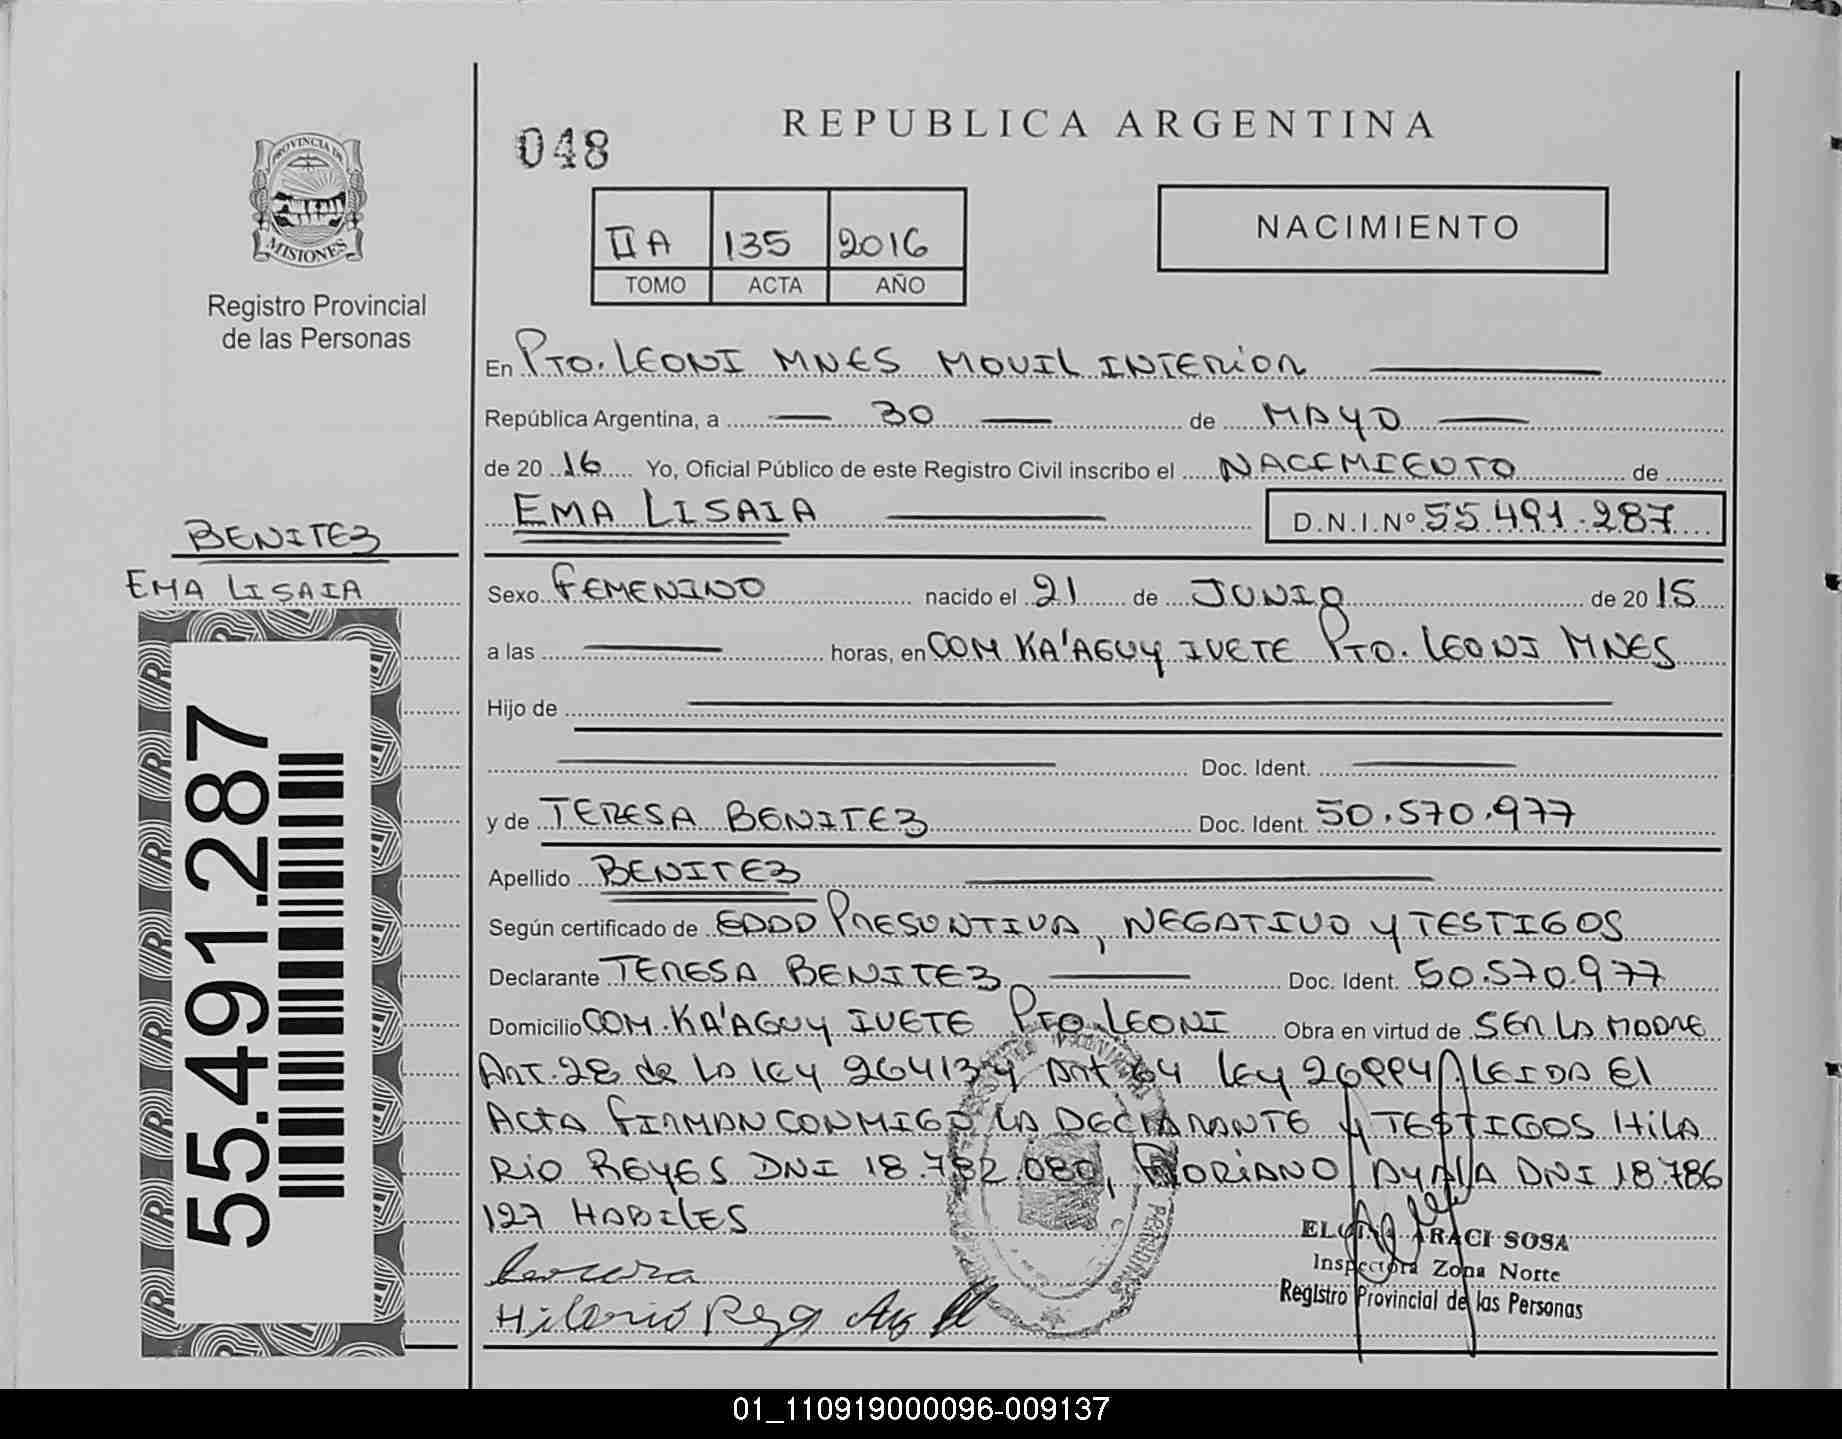 048
REPUBLICA ARGENTINA
PROVINCIA DE
MISIONES
Registro Provincial
de las Personas
II A 135 2016
TOMO ACTA AÑO
NACIMIENTO
En PTO. LEONI MNES MOVIL INTERIOR
República Argentina, a 30 de MAYO
de 20 16 Yo, Oficial Público de este Registro Civil inscribo el NACIMIENTO de
EMA LISAIA D.N.I.Nº 55.491.287
BENITEZ
EMA LISAIA
55.491.287
Sexo FEMENINO nacido el 21 de JUNIO de 20 15
a las horas, en COM KA'AGUY IVETE PTO. LEONI MNES
Hijo de
Doc. Ident.
y de TERESA BENITEZ Doc. Ident. 50.570.977
Apellido BENITEZ
Según certificado de EDAD PRESUNTIVA, NEGATIVO Y TESTIGOS
Declarante TERESA BENITEZ Doc. Ident. 50.570.977
Domicilio COM. KA'AGUY IVETE PTO. LEONI Obra en virtud de SER LA MADRE
ART. 28 de LA LEY 26413 Y ART 64 LEY 26994 LEIDA El
ACTA FIRMAN CONMIGO LA DECLARANTE Y TESTIGOS HILA
RIO REYES DNI 18.782.080, FLORIANO AYALA DNI 18.786
127 HABILES
Hilario
ARACI SOSA
Inspectora Zona Norte
Registro Provincial de las Personas
01_110919000096-009137